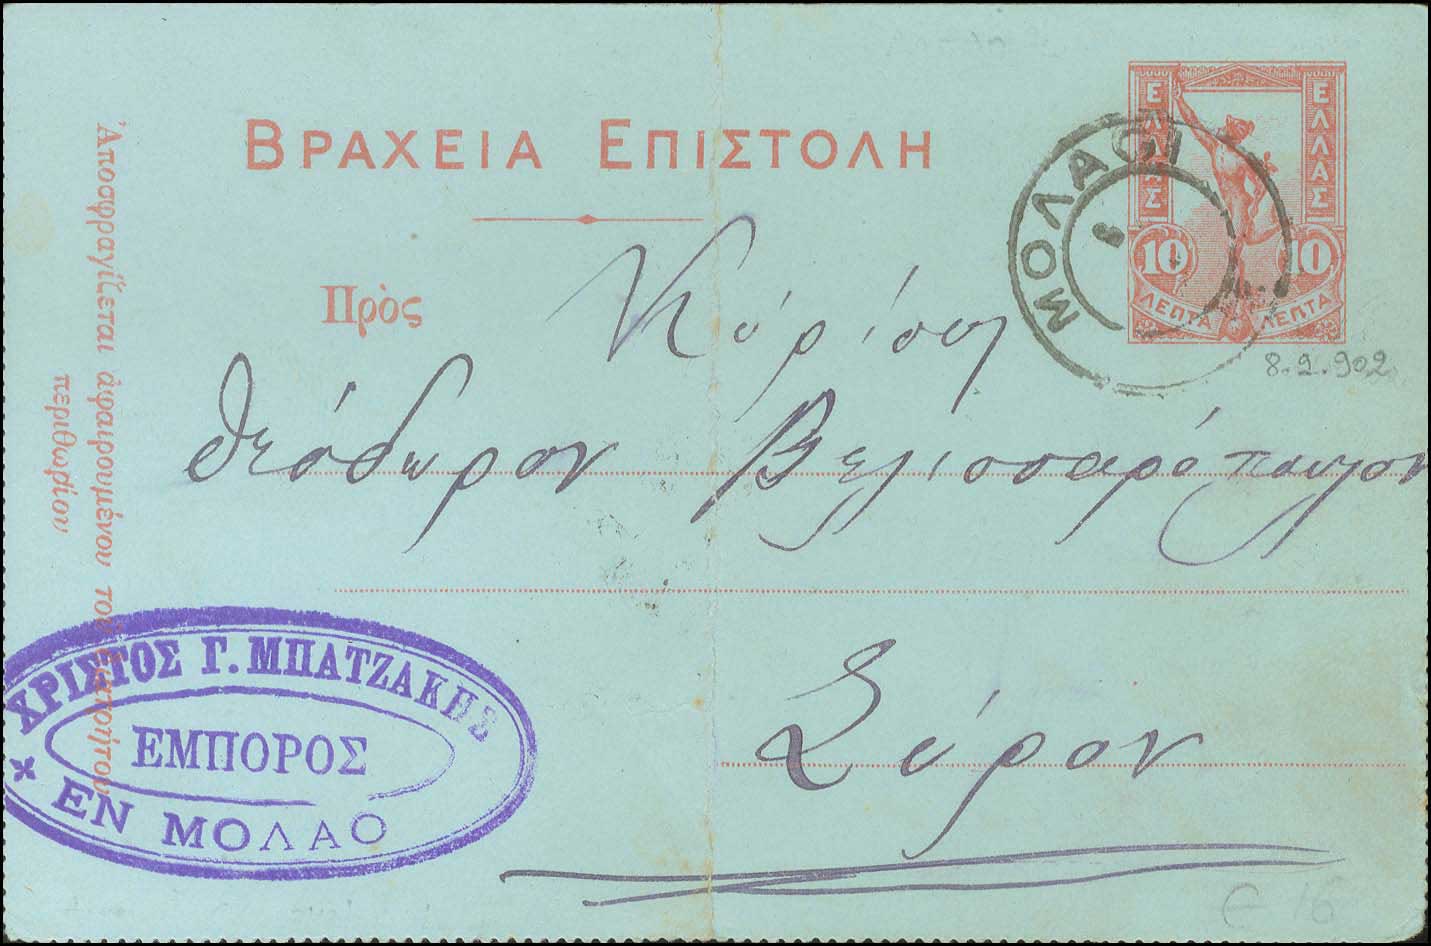 ΒΡΑΧΕΙΑ ΕΠΙΣΤΟΛΗ
ΕΛΛΑΣ
ΕΛΛΑΣ
10
10
ΛΕΠΤΑ
ΛΕΠΤΑ
ΜΟΛΑΟΙ
8
8.2.902
Πρὸς
Κύριον
Θεόδωρον Βελισσαρόπουλον
Σύρον
Ἀποσφραγίζεται ἀφαιρουμένου τοῦ διατρήτου
περιθωρίου
ΧΡΙΣΤΟΣ Γ. ΜΠΑΤΖΑΚΗΣ
ΕΜΠΟΡΟΣ
ΕΝ ΜΟΛΑΟ
€ 16